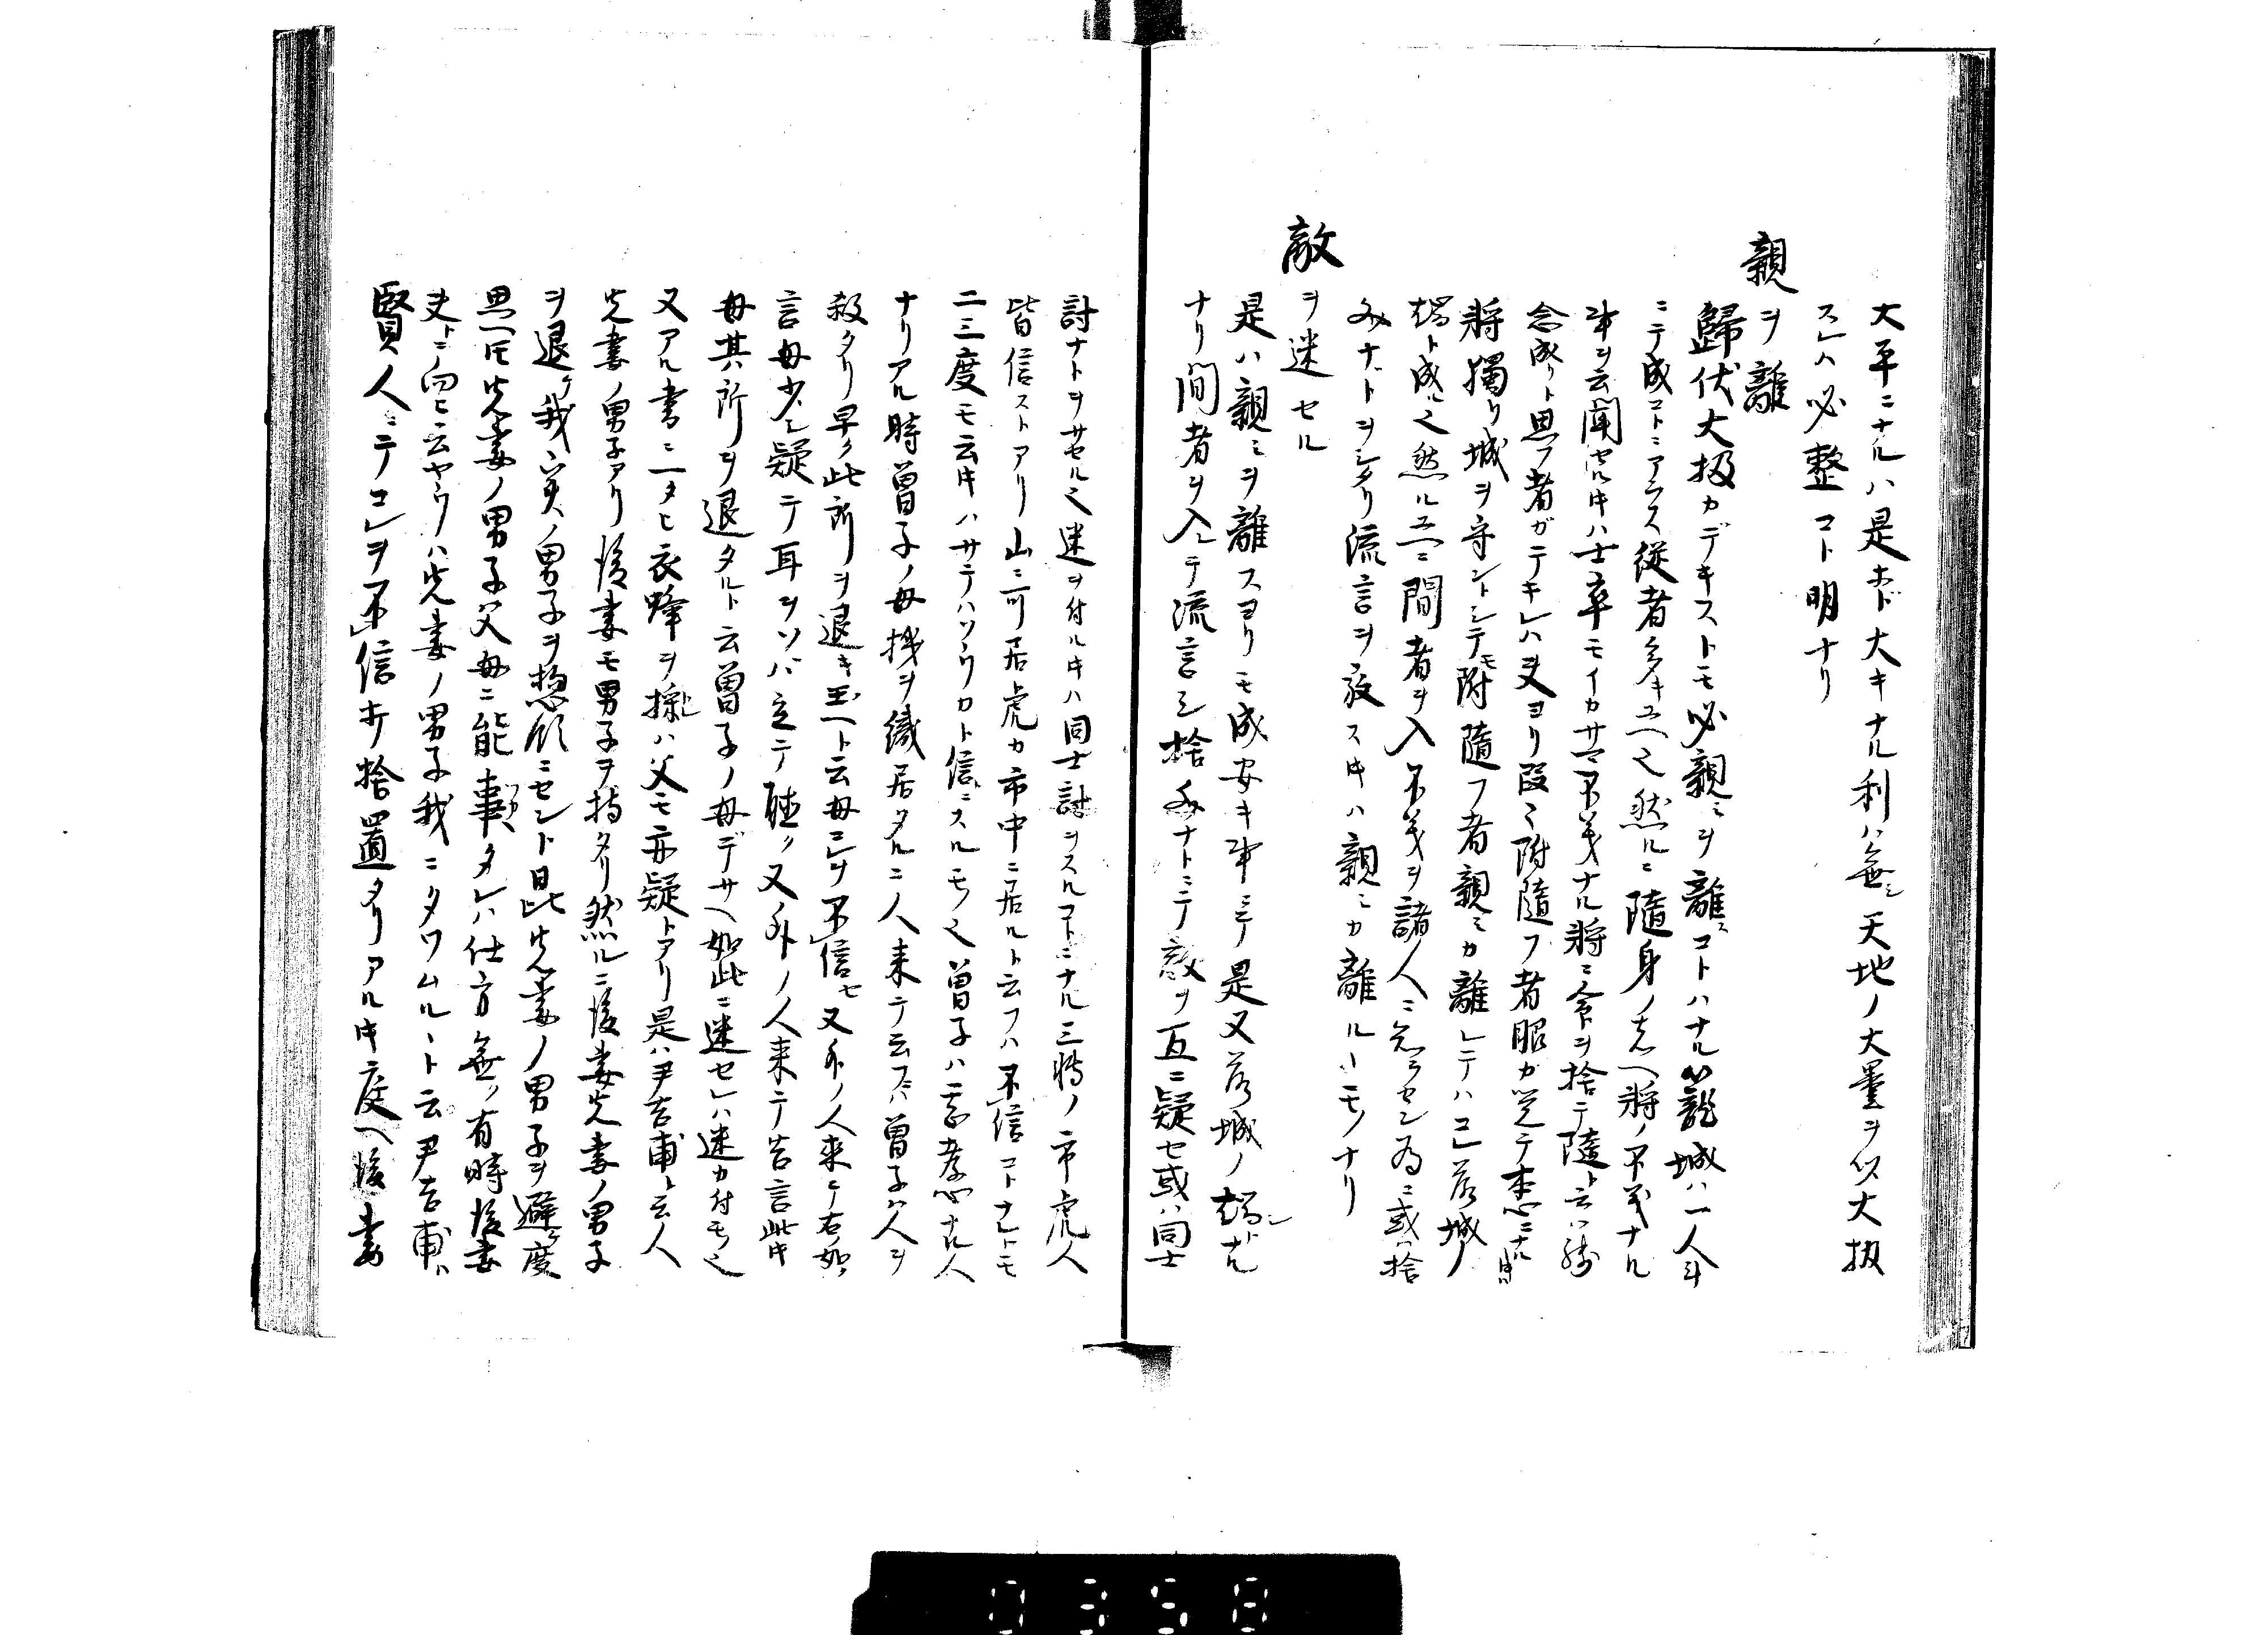 大平ニナルハ是ホド大キナル利ハ無シ天地ノ大量ヲ以大扱
スレハ必整コト明ナリ
親ヲ離
歸伏大扱カデキストモ必親ミヲ離スコトハナル籠城ハ一人斗
ニテ成コトニアラス従者多キユヘ也然ルニ隨身ノ者ヘ将ノ不義ナル
事ヲ云聞セルキハ士卒モイカサマ不義ナル将ニ命ヲ捨テ隨ト云ハ
念成リト思フ者ガテキレハ夫ヨリ段々附隨フ者眼カ覚テ
将獨リ城ヲ守ントシテモ附隨フ者親ミカ離レテハコレ落城ノ
端ト成ル也然ルユヘニ間者ヲ入不義ヲ諸人ニ知ラセン為ニ或捨
文ナトヲシタリ流言ヲ放スキハ親ミカ離ルヽモノナリ
敵ヲ迷セル
是ハ親ミヲ離スヨリモ成安キ事ニテ是又落城ノ端トナル
ナリ間者ヲ入レテ流言シ捨文ナトニテ敵ヲ互ニ疑セ或ハ同士
討ナトヲサセル也迷ヲ付ルキハ同士討ヲスルコトニナル三将ノ市虎人
皆信ストアリ山ニ可居虎カ市中ニ居ルト云フハ不信コトナレトモ
二三度モ云キハサテハソウカト信ニスルモノ也曽子ハ孝心ナル人
ナリアル時曽子ノ母機ヲ織居タルニ人来テ云フハ曽子ハ人ヲ
殺タリ早ク此所ヲ退キ玉ヘト云母コレヲ不信セ又外ノ人来テ右如
言母少シ疑テ耳ヲソバ立テ聴ク又外ノ人来テ告言此キ
母其所ヲ退タルト云曽子ノ母デサヘ如此ニ迷セレハ迷カ付モノ也
又アル書ニ一タヒ衣蜂ヲ操ハ父モ亦疑トアリ是ハ尹吉甫ト云人
先妻ノ男子アリ後妻モ男子ヲ持タリ然ルニ後妻先妻ノ男子
ヲ退ケ我実ノ男子ヲ惣領ニセント思此先妻ノ男子ヲ避ケ度
思ヘ𪜈先妻ノ男子父母ニ能事ヘタレハ仕方無ク有時後妻
夫トニ向ヒ云ヤウハ先妻ノ男子我ニタワムルヽト云尹吉甫ハ
賢人ニテコレヲ不信シテ捨置タリアルキ庭ヘ後妻